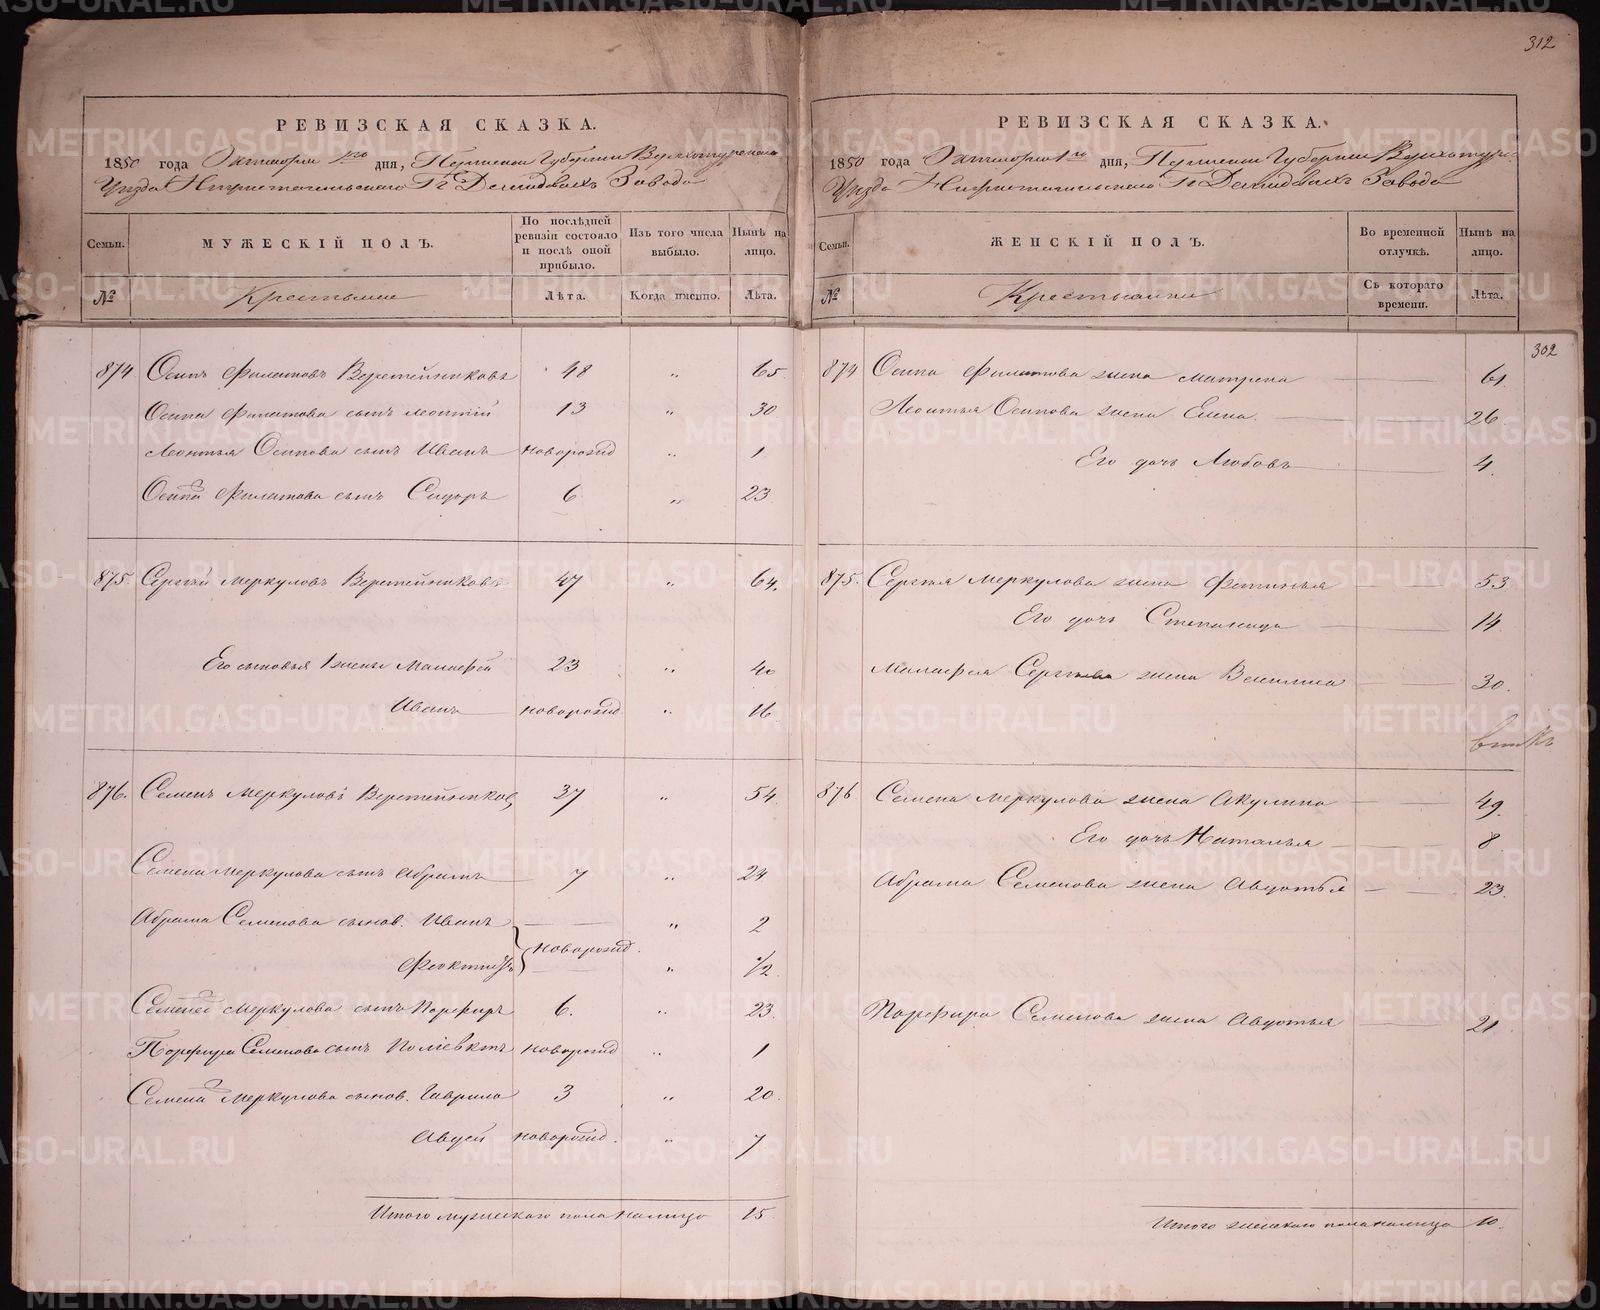 312
РЕВИЗСКАЯ СКАЗКА.
1850 года Октября 1го дня, Пермской Губернии Верхотурскаго
Уѣзда Нижнетагильскаго Гг Демидовыхъ Завода
Семьи. МУЖЕСКІЙ ПОЛЪ. По послѣдней ревизіи состояло и послѣ оной прибыло. Изъ того числа выбыло. Нынѣ на лицо.
№ Крестьяне Лѣта. Когда именно. Лѣта.
874 Осипъ Филатовъ Веретейниковъ 48 " 65
Осипа Филатова сынъ Леонтій 13 " 30
Леонтья Осипова сынъ Иванъ новорожд " 1
Осипа Филатова 2 сынъ Сидоръ 6 " 23
875. Сергѣй Меркуловъ Веретейниковъ 47 " 64.
Его сыновья 1 жены Малафѣй 23 " 40
Иванъ новорожд " 16
876. Семенъ Меркуловъ Веретейниковъ 37 " 54
Семена Меркулова сынъ Абрамъ 7 " 24
Абрама Семенова сынов. Иванъ " 2
новорожд.
Феоктистъ " 1/2
Семена Меркулова 2 сынъ Порфиръ 6. " 23.
Порфира Семенова сынъ Поліевктъ новорожд " 1
Семена Меркулова 2 сынов. Гаврило 3 " 20.
Авдей новорожд. " 7
Итого мужескаго пола на лицо 15
РЕВИЗСКАЯ СКАЗКА.
1850 года Октября 1го дня, Пермской Губерніи Верхотур.
Уѣзда Нижнетагильскаго Гг Демидовыхъ Завода
Семьи. ЖЕНСКІЙ ПОЛЪ. Во временной отлучкѣ. Нынѣ на лицо.
№ Крестьянки Съ котораго времени. Лѣта.
302
874 Осипа Филатова жена Матрена 61
Леонтья Осипова жена Елена. 26
Его дочь Любовь 4
875. Сергѣя Меркулова жена Фетинья 53
Его дочь Степанида 14
Малафея Сергѣева жена Василиса 30.
876 Семена Меркулова жена Акулина 49.
Его дочь Наталья 8
Абрама Семенова жена Авдотья 23.
Порфира Семенова жена Авдотья 21
Итого женскаго пола на лицо 10.
METRIKI.GASO-URAL.RU